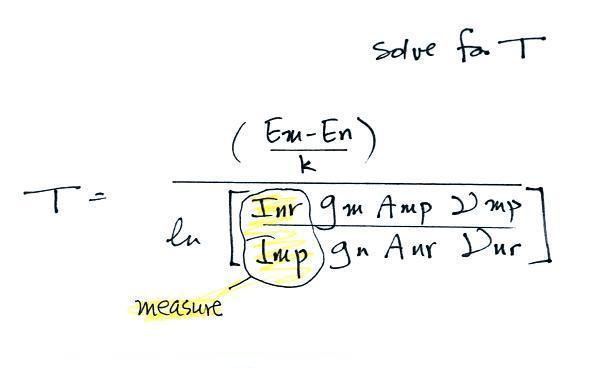 solve for T
T = (Em-En / k) / ln [Inr gm Amp νmp / Imp gn Anr νnr]
measure